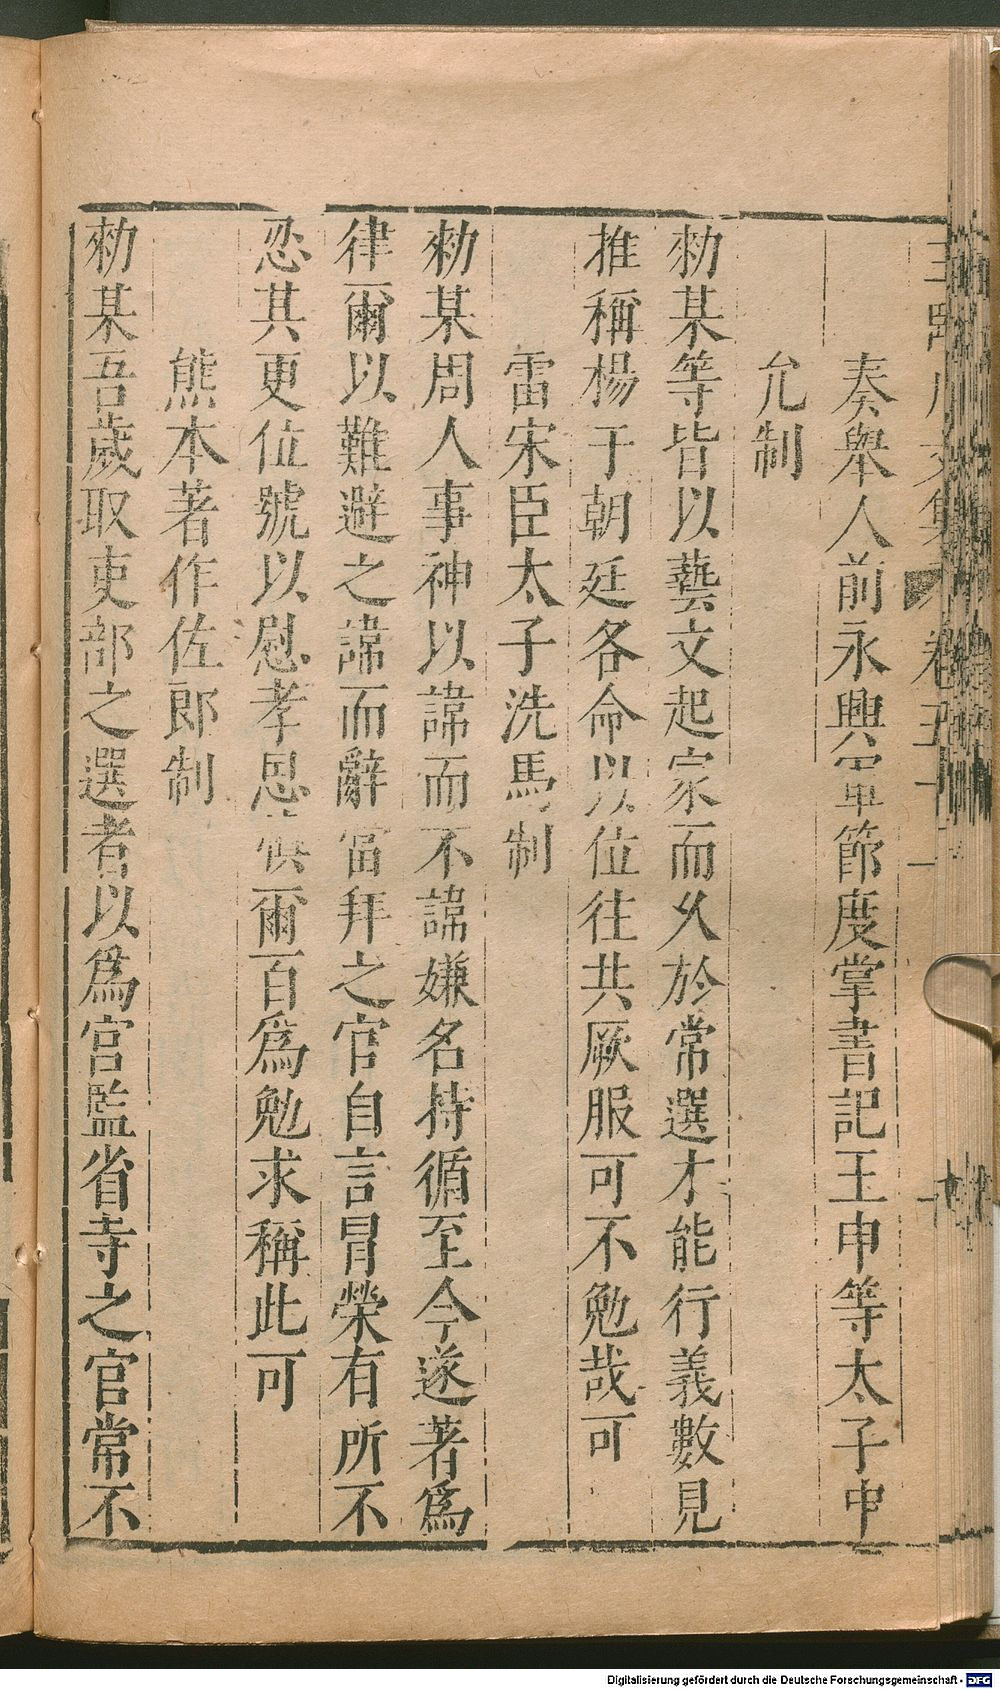 奏舉人前永興軍節度掌書記王申等太子中
允制
勑某等皆以藝文起家而久於常選才能行義數見
推稱楊于朝廷各命以位往共厥服可不勉哉可
雷宋臣太子洗馬制
勑某周人事神以諱而不諱嫌名持循至今遂著爲
律爾以難避之諱而辭當拜之官自言冒榮有所不
忍其更位號以慰孝思 爾百爲勉求稱此可
熊本著作佐郎制
勑某吾歲取吏部之選者以爲宮監省寺之官常不
Digitalisierung gefördert durch die Deutsche Forschungsgemeinschaft - DFG